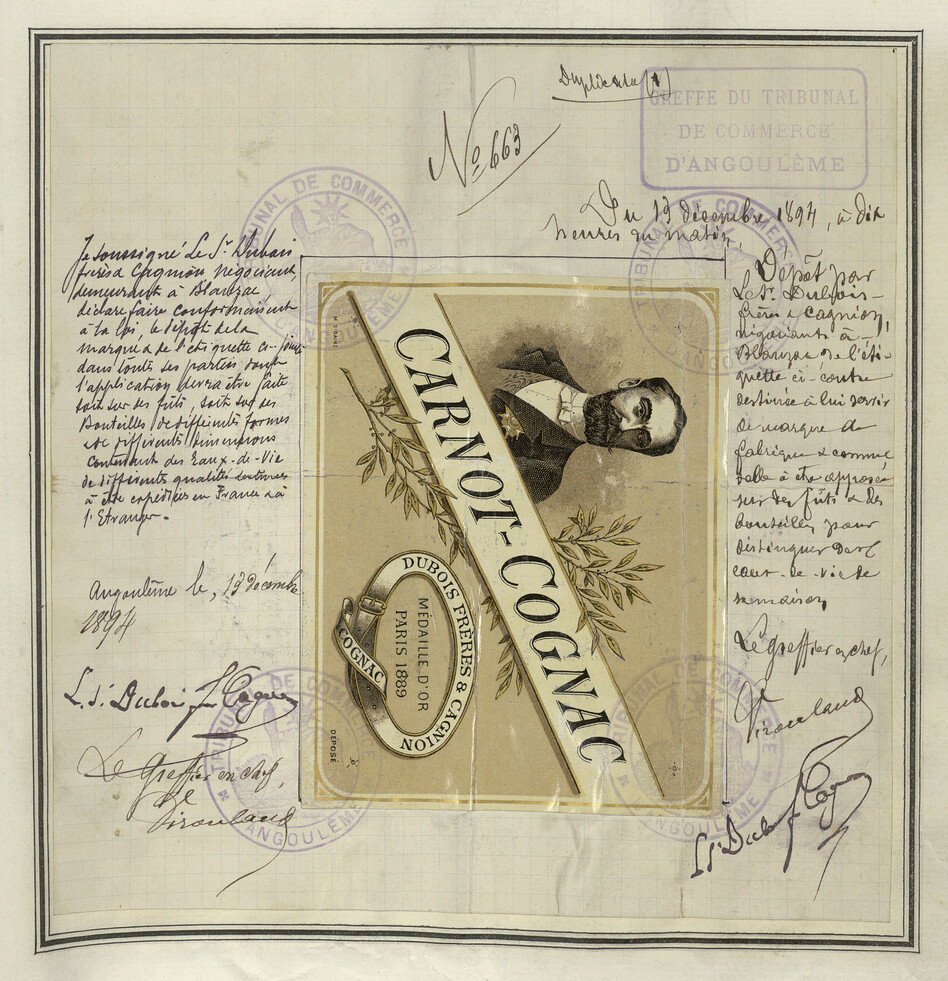 Duplicata (1)
GREFFE DU TRIBUNAL
DE COMMERCE
D'ANGOULÊME
No 663
Du 13 décembre 1894, à dix
heures du matin,
TRIBUNAL DE COMMERCE
Je soussigné Le Sr Dubois
frères & Cagnion négociant,
demeurant à Blanzac,
déclare faire conformément
à la loi, le dépôt de la
marque & de l'étiquette ci-jointe
dans toutes ses parties dont
l'application devra être faite
soit sur des fûts, soit sur des
Bouteilles de différentes formes
& de différentes dimensions
contenant des Eaux-de-Vie
de différentes qualités destinées
à être expédiées en France & à
l'Etranger.
Angoulême le, 13 décembre
1894
L. s. Dubois fres Cagnion
Le Greffier en chef,
TRIBUNAL DE COMMERCE
ANGOULÊME
CARNOT-COGNAC
DUBOIS FRÈRES & CAGNION
MÉDAILLE D'OR
PARIS 1889
COGNAC
DÉPOSÉ
TRIBUNAL DE COMMERCE
Dépôt par
Le Sr Dubois-
frères & Cagnion,
négociants à-
Blanzac de l'éti-
quette ci-contre
destinée à lui servir
de marque de
fabrique & comme
telle à être apposée
sur des fûts & des
bouteilles pour
distinguer
eaux-de-vie de
sa maison,
Le greffier en chef,
L. s. Dubois
ANGOULÊME